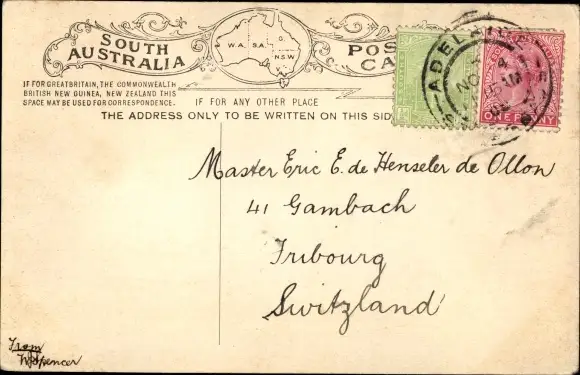 SOUTH
AUSTRALIA
W.A. S.A. Q. N.S.W
IF FOR GREAT BRITAIN, THE COMMONWEALTH
BRITISH NEW GUINEA, NEW ZEALAND THIS
SPACE MAY BE USED FOR CORRESPONDENCE.
IF FOR ANY OTHER PLACE
THE ADDRESS ONLY TO BE WRITTEN ON THIS SID
POS
CA
ADELAIDE
ONE PENNY
Master Eric E. de Henseler de Ollon
41 Gambach
Fribourg
Switzland
From
W Spencer